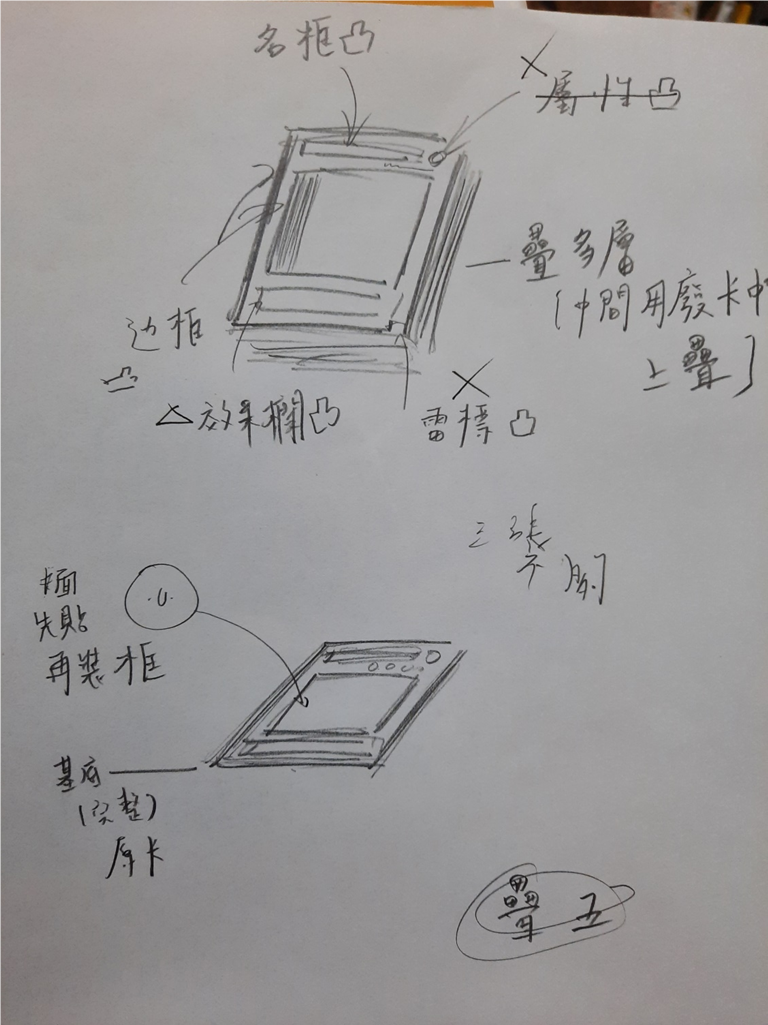 名框凸
屬性凸
疊多層
(中間用廢卡中
上疊)
边框
凸
效果欄凸
雷標凸
三張
不夠
卡面
先貼
再裝框
基底
(完整)
原卡
疊五